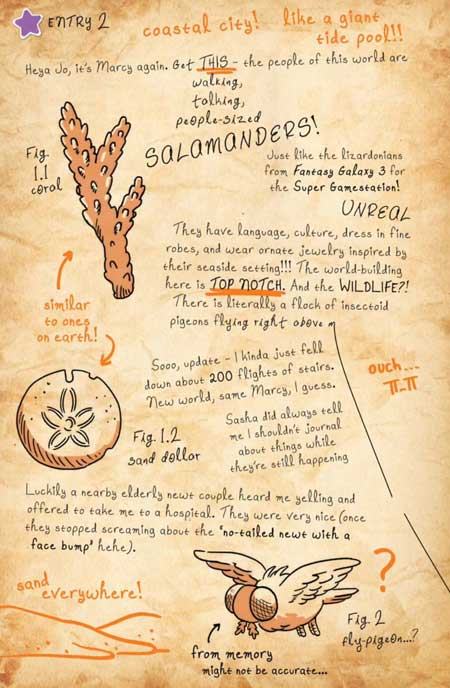 ENTRY 2
coastal city! like a giant
tide pool!!
Heya Jo, it's Marcy again. Get THIS - the people of this world are
walking,
talking,
people-sized
SALAMANDERS!
Fig.
1.1
coral
Just like the lizardonians
from Fantasy Galaxy 3 for
the Super Gamestation!
UNREAL
They have language, culture, dress in fine
robes, and wear ornate jewelry inspired by
their seaside setting!!! The world-building
here is TOP NOTCH. And the WILDLIFE?!
There is literally a flock of insectoid
pigeons flying right above m
similar
to ones
on earth!
Sooo, update - I kinda just fell
down about 200 flights of stairs.
New world, same Marcy, I guess.
ouch...
π-π
Fig. 1.2
sand dollar
Sasha did always tell
me I shouldn't journal
about things while
they're still happening
Luckily a nearby elderly newt couple heard me yelling and
offered to take me to a hospital. They were very nice (once
they stopped screaming about the "no-tailed newt with a
face bump" hehe).
sand
everywhere!
?
Fig. 2
fly-pigeon...?
from memory
might not be accurate...